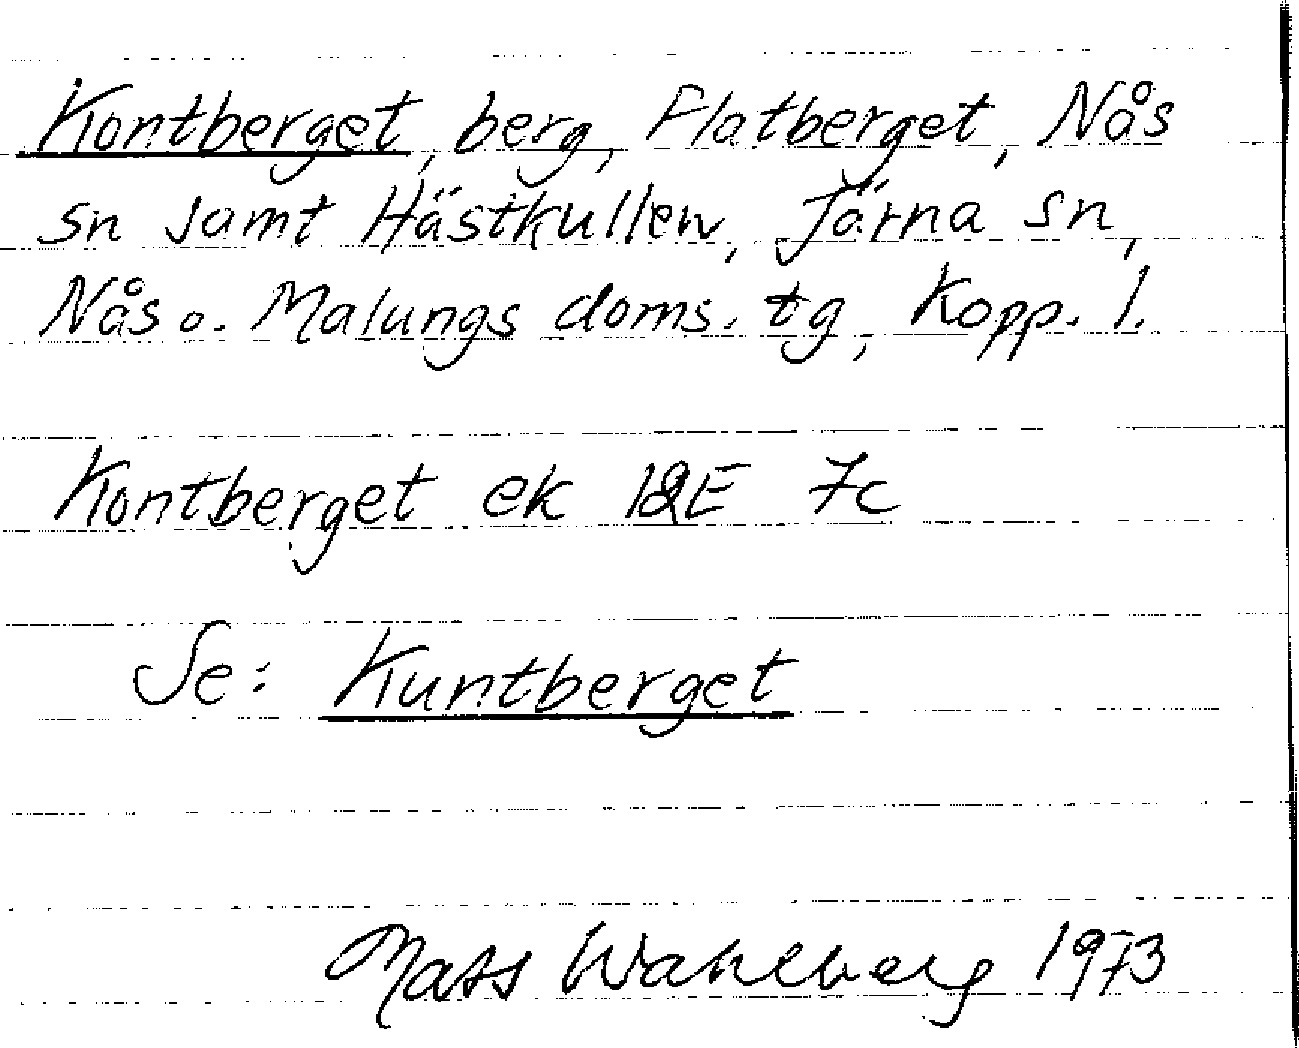 Kontberget, berg, Flatberget, Nås
sn samt Hästkullen, Järna sn,
Nås o. Malungs doms. tg, Kopp. l.
Kontberget ek 12E 7c
Se: Kuntberget
Mats Wahlberg 1973